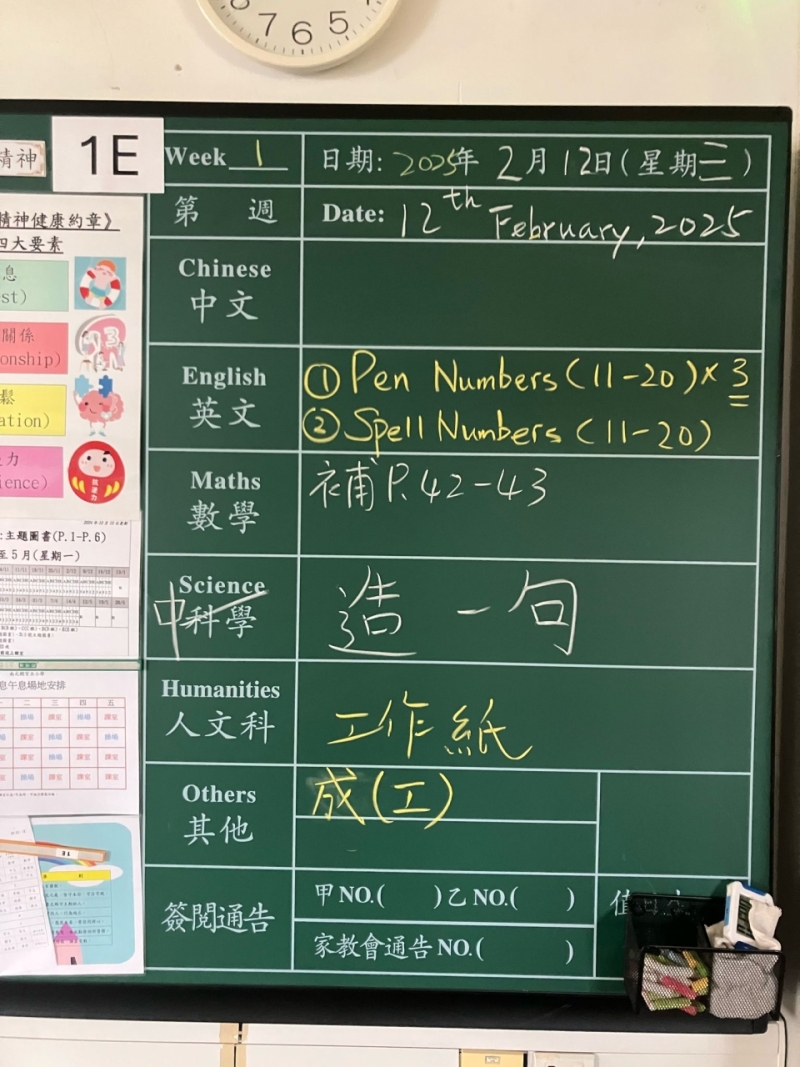 7 6 5
精神
1E
Week 1
日期: 2025年 2月 12日(星期三)
第 週
Date: 12th February, 2025
精神健康約章》
四大要素
息
st)
關係
onship)
鬆
ation)
力
ience)
Chinese
中文
English
英文
① Pen Numbers (11-20) × 3
② Spell Numbers (11-20)
Maths
數學
補 P.42-43
:主題圖書(P.1-P.6)
至5月(星期一)
Science
中科學
造一句
息午息場地安排
二 三 四 五
Humanities
人文科
工作紙
Others
其他
成(工)
簽閱通告
甲NO.( )乙NO.( )
家教會通告NO.( )